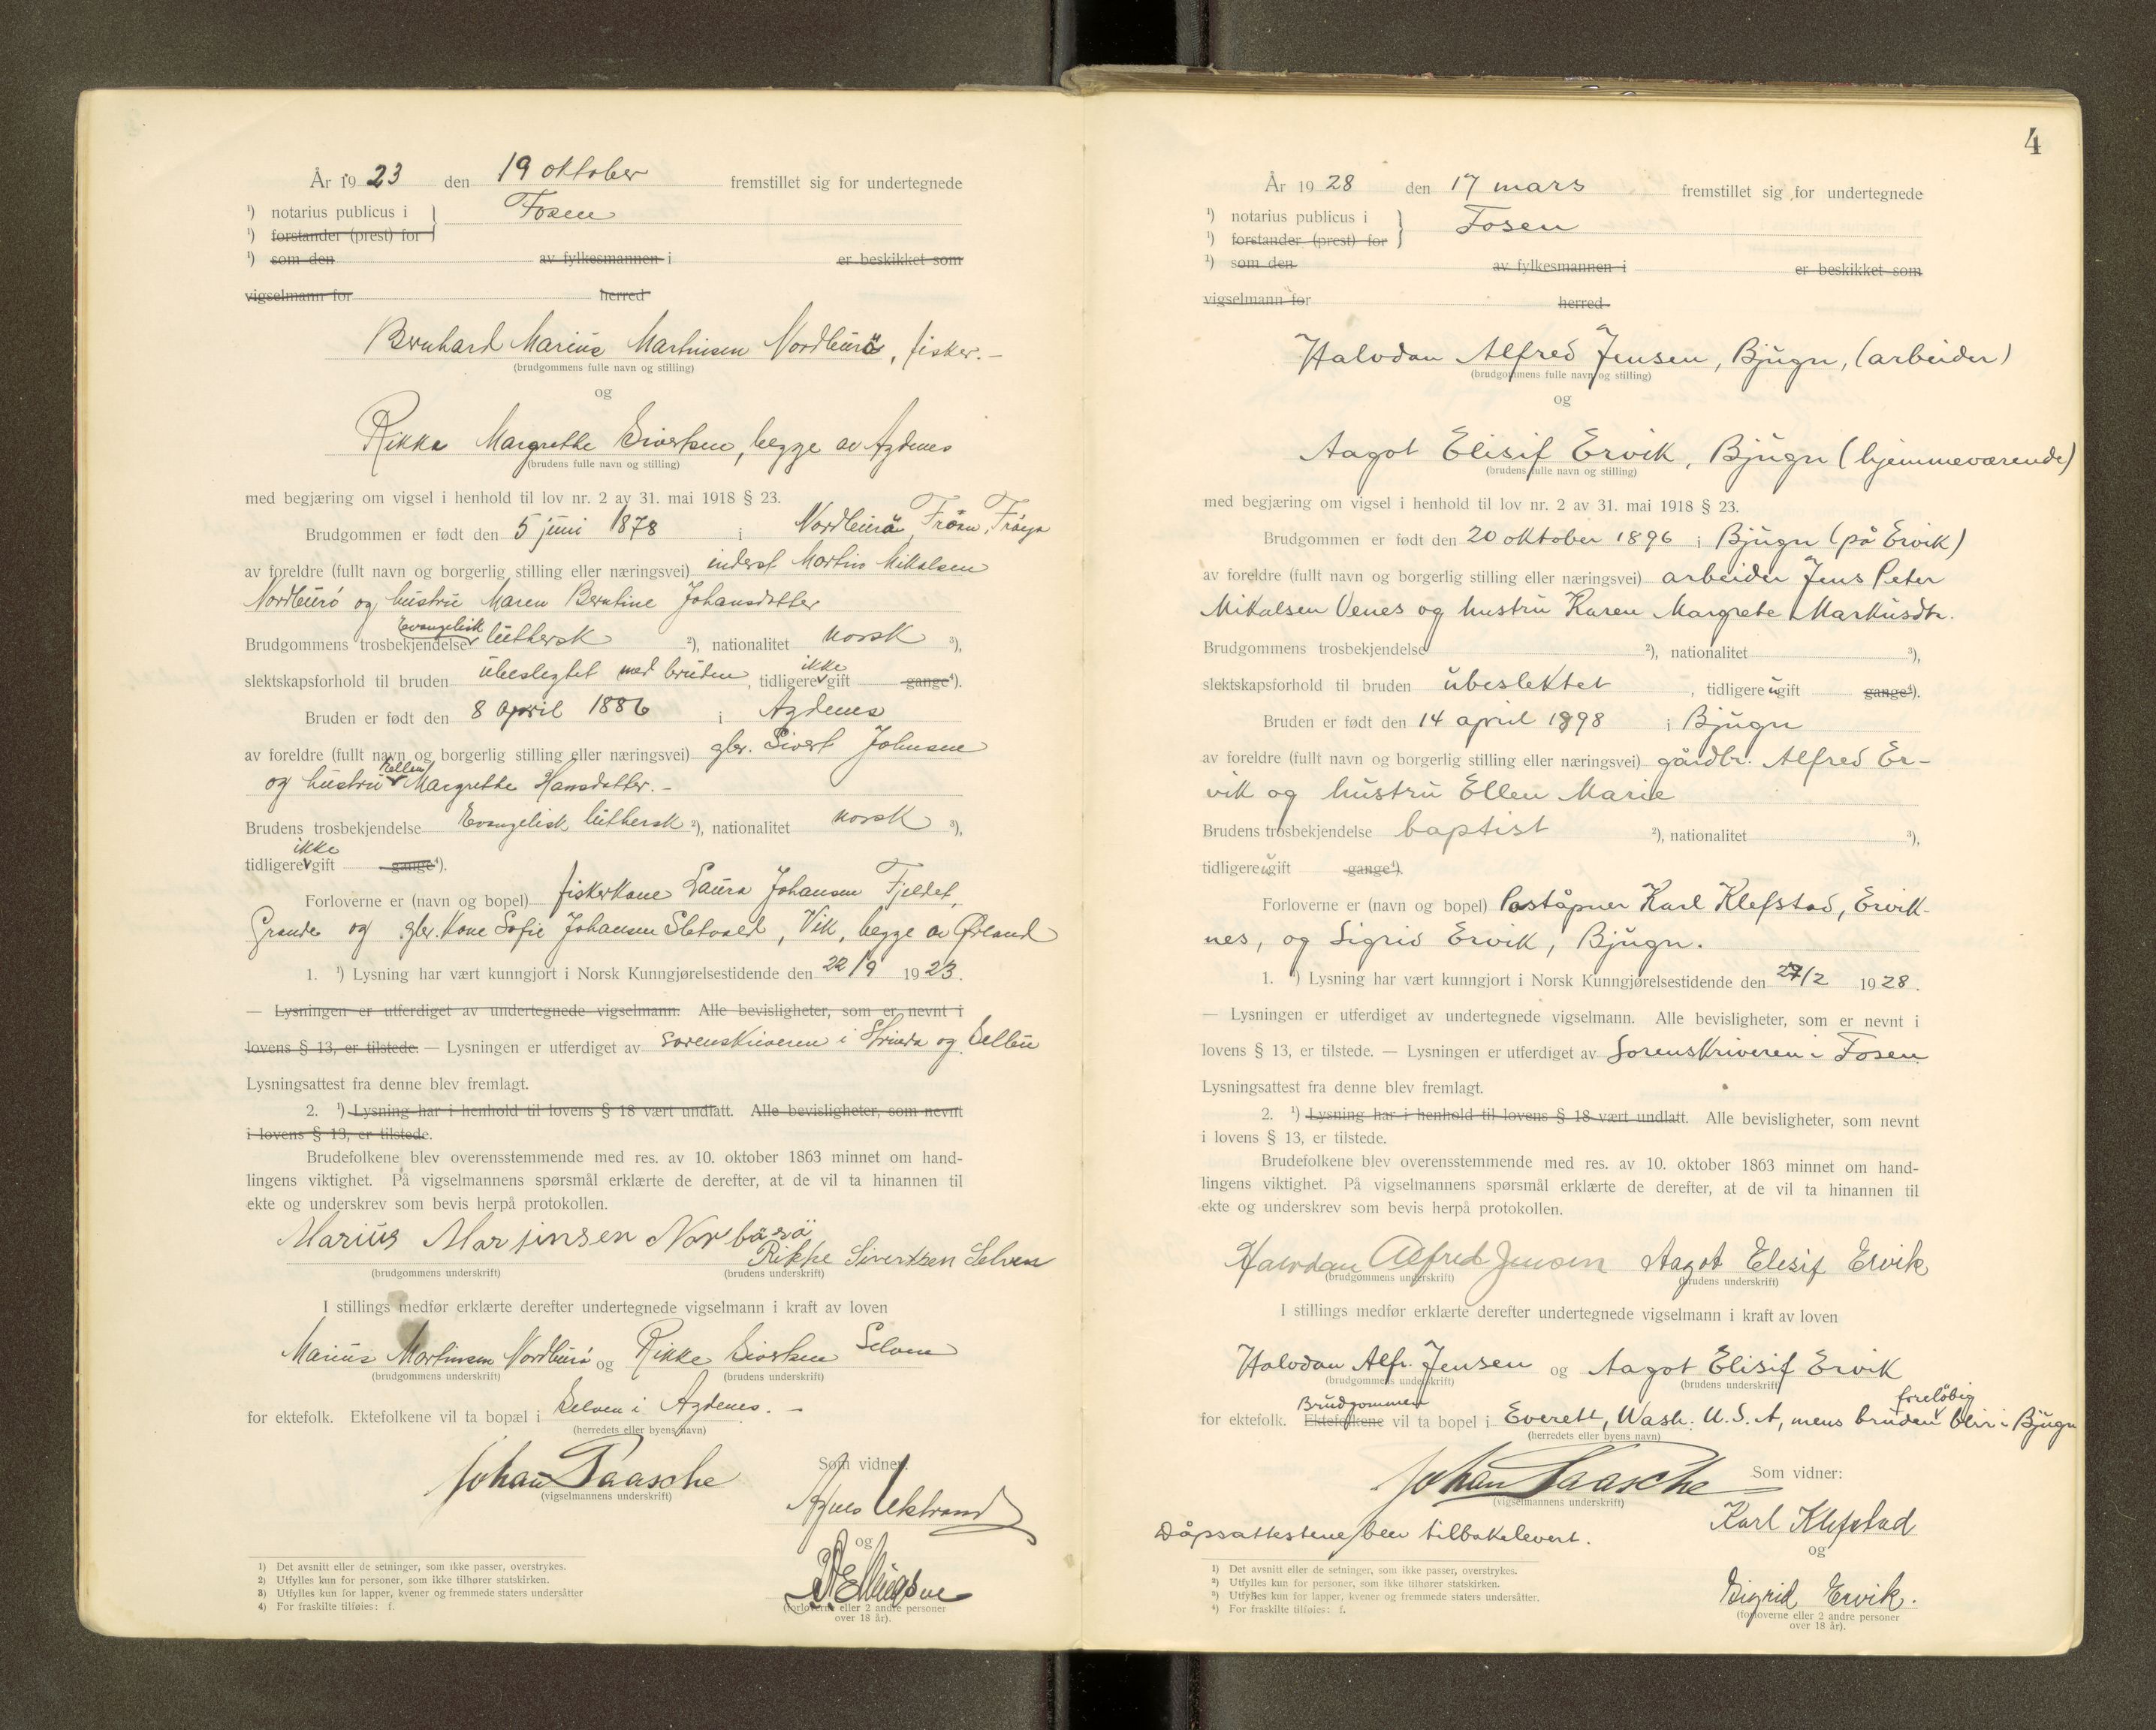 År 1923 den 19 oktober fremstillet sig for undertegnede
¹) notarius publicus i Fosen
¹) forstander (prest) for
¹) som den av fylkesmannen i er beskikket som
vigselmann for herred
Bernhard Marius Martinsen Nordburö, fisker. -
(brudgommens fulle navn og stilling)
og
Rikke Margrethe Sivertsen, begge av Agdenes
(brudens fulle navn og stilling)
med begjæring om vigsel i henhold til lov nr. 2 av 31. mai 1918 § 23.
Brudgommen er født den 5 juni 1878 i Fröya
av foreldre (fullt navn og borgerlig stilling eller næringsvei) inderst Martin Mikalsen
Nordburö og hustru Maren Berntine Johansdatter
Brudgommens trosbekjendelse Evangelisk luthersk ²), nationalitet norsk ³),
slektskapsforhold til bruden ubeslegtet med bruden, tidligere ikke gift gange⁴).
Bruden er født den 8 april 1886 i Agdenes
av foreldre (fullt navn og borgerlig stilling eller næringsvei) gbr. Sivert Johnsen
og hustru Margrethe Hansdatter. -
Brudens trosbekjendelse Evangelisk luthersk ²), nationalitet norsk ³),
tidligere ikke gift gange⁴).
Forloverne er (navn og bopel) fiskerkone Laura Johansen Fjeldet,
Grande og gbr. kone Sofie Johansen Sletvold, Vik, begge av Ørland
1. ¹) Lysning har vært kunngjort i Norsk Kunngjørelsestidende den 22/9 1923.
— Lysningen er utferdiget av undertegnede vigselmann. Alle bevisligheter, som er nevnt i
lovens § 13, er tilstede. — Lysningen er utferdiget av sorenskriveren i Strinda og Selbu
Lysningsattest fra denne blev fremlagt.
2. ¹) Lysning har i henhold til lovens § 18 vært undlatt. Alle bevisligheter, som nevnt
i lovens § 13, er tilstede.
Brudefolkene blev overensstemmende med res. av 10. oktober 1863 minnet om hand-
lingens viktighet. På vigselmannens spørsmål erklærte de derefter, at de vil ta hinannen til
ekte og underskrev som bevis herpå protokollen.
Marius Marjinsen
Rikke Sivertsen Selven
(brudgommens underskrift) (brudens underskrift)
I stillings medfør erklærte derefter undertegnede vigselmann i kraft av loven
Marius Martinsen Nordburö og Rikke Sivertsen Selven
(brudgommens underskrift) (brudens underskrift)
for ektefolk. Ektefolkene vil ta bopæl i Selven i Agdenes. -
(herredets eller byens navn)
Johan Paasche
(vigselmannens underskrift)
Som vidner:
Agnes Ukstrand
og
(forloverne eller 2 andre personer
over 18 år).
1) Det avsnitt eller de setninger, som ikke passer, overstrykes.
2) Utfylles kun for personer, som ikke tilhører statskirken.
3) Utfylles kun for lapper, kvener og fremmede staters undersåtter
4) For fraskilte tilføies: f.
4
År 1928 den 17 mars fremstillet sig for undertegnede
¹) notarius publicus i Fosen
¹) forstander (prest) for
¹) som den av fylkesmannen i er beskikket som
vigselmann for herred
Halvdan Alfred Jensen, Bjugn, (arbeider)
(brudgommens fulle navn og stilling)
og
Aagot Elisif Ervik, Bjugn (hjemmeværende)
(brudens fulle navn og stilling)
med begjæring om vigsel i henhold til lov nr. 2 av 31. mai 1918 § 23.
Brudgommen er født den 20 oktober 1896 i Bjugn (på Ervik)
av foreldre (fullt navn og borgerlig stilling eller næringsvei) arbeider Jens Peter
Mikalsen Venes og hustru Karen Margrete Markusdtr.
Brudgommens trosbekjendelse ²), nationalitet ³),
slektskapsforhold til bruden ubeslektet, tidligere ugift gange⁴).
Bruden er født den 14 april 1898 i Bjugn
av foreldre (fullt navn og borgerlig stilling eller næringsvei) gårdbr. Alfred Er-
vik og hustru Ellen Marie
Brudens trosbekjendelse baptist ²), nationalitet ³),
tidligere ugift gange⁴).
Forloverne er (navn og bopel) Poståpner Karl Klefstad, Ervik-
nes, og Sigrid Ervik, Bjugn.
1. ¹) Lysning har vært kunngjort i Norsk Kunngjørelsestidende den 27/2 1928.
— Lysningen er utferdiget av undertegnede vigselmann. Alle bevisligheter, som er nevnt i
lovens § 13, er tilstede. — Lysningen er utferdiget av Sorenskriveren i Fosen
Lysningsattest fra denne blev fremlagt.
2. ¹) Lysning har i henhold til lovens § 18 vært undlatt. Alle bevisligheter, som nevnt
i lovens § 13, er tilstede.
Brudefolkene blev overensstemmende med res. av 10. oktober 1863 minnet om hand-
lingens viktighet. På vigselmannens spørsmål erklærte de derefter, at de vil ta hinannen til
ekte og underskrev som bevis herpå protokollen.
Halvdan Alfred Jensen Aagot Elisif Ervik
(brudgommens underskrift) (brudens underskrift)
I stillings medfør erklærte derefter undertegnede vigselmann i kraft av loven
Halvdan Alfr. Jensen og Aagot Elisif Ervik
(brudgommens underskrift) (brudens underskrift)
for ektefolk. Ektefolkene Brudgommen vil ta bopel i Everett, Wash. U.S.A, mens bruden foreløbig blir i Bjugn
(herredets eller byens navn)
Johan Paasche
(vigselmannens underskrift)
Som vidner:
Karl Klefstad
og
Dåpsattestene blev tilbakelevert.
Sigrid Ervik.
(forloverne eller 2 andre personer
over 18 år).
¹) Det avsnitt eller de setninger, som ikke passer, overstrykes.
²) Utfylles kun for personer, som ikke tilhører statskirken.
³) Utfylles kun for lapper, kvener og fremmede staters undersåtter.
⁴) For fraskilte tilføies: f.